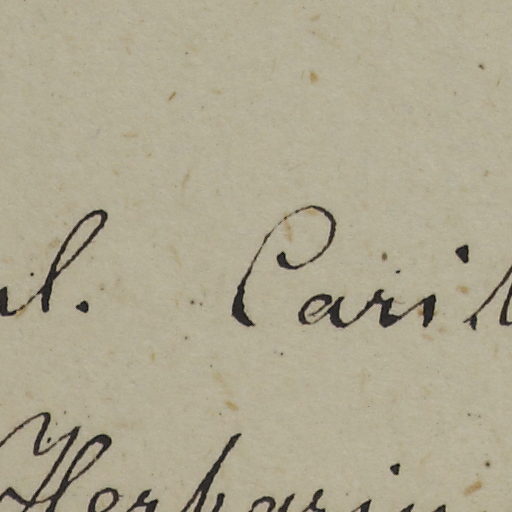 l. Carib
Herbariu